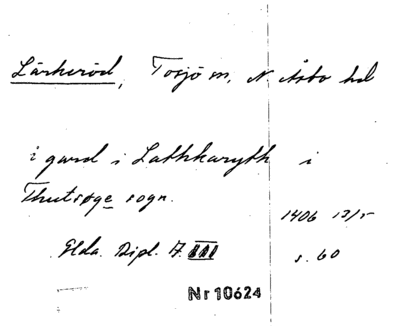 Lärkeröd, Tosjö sn, N. Åsbo hd
i gard i Lathkaryth i
Thutsøge sogn.
1406 12/5
Ælda. Dipl. A. III s. 60
Nr 10624